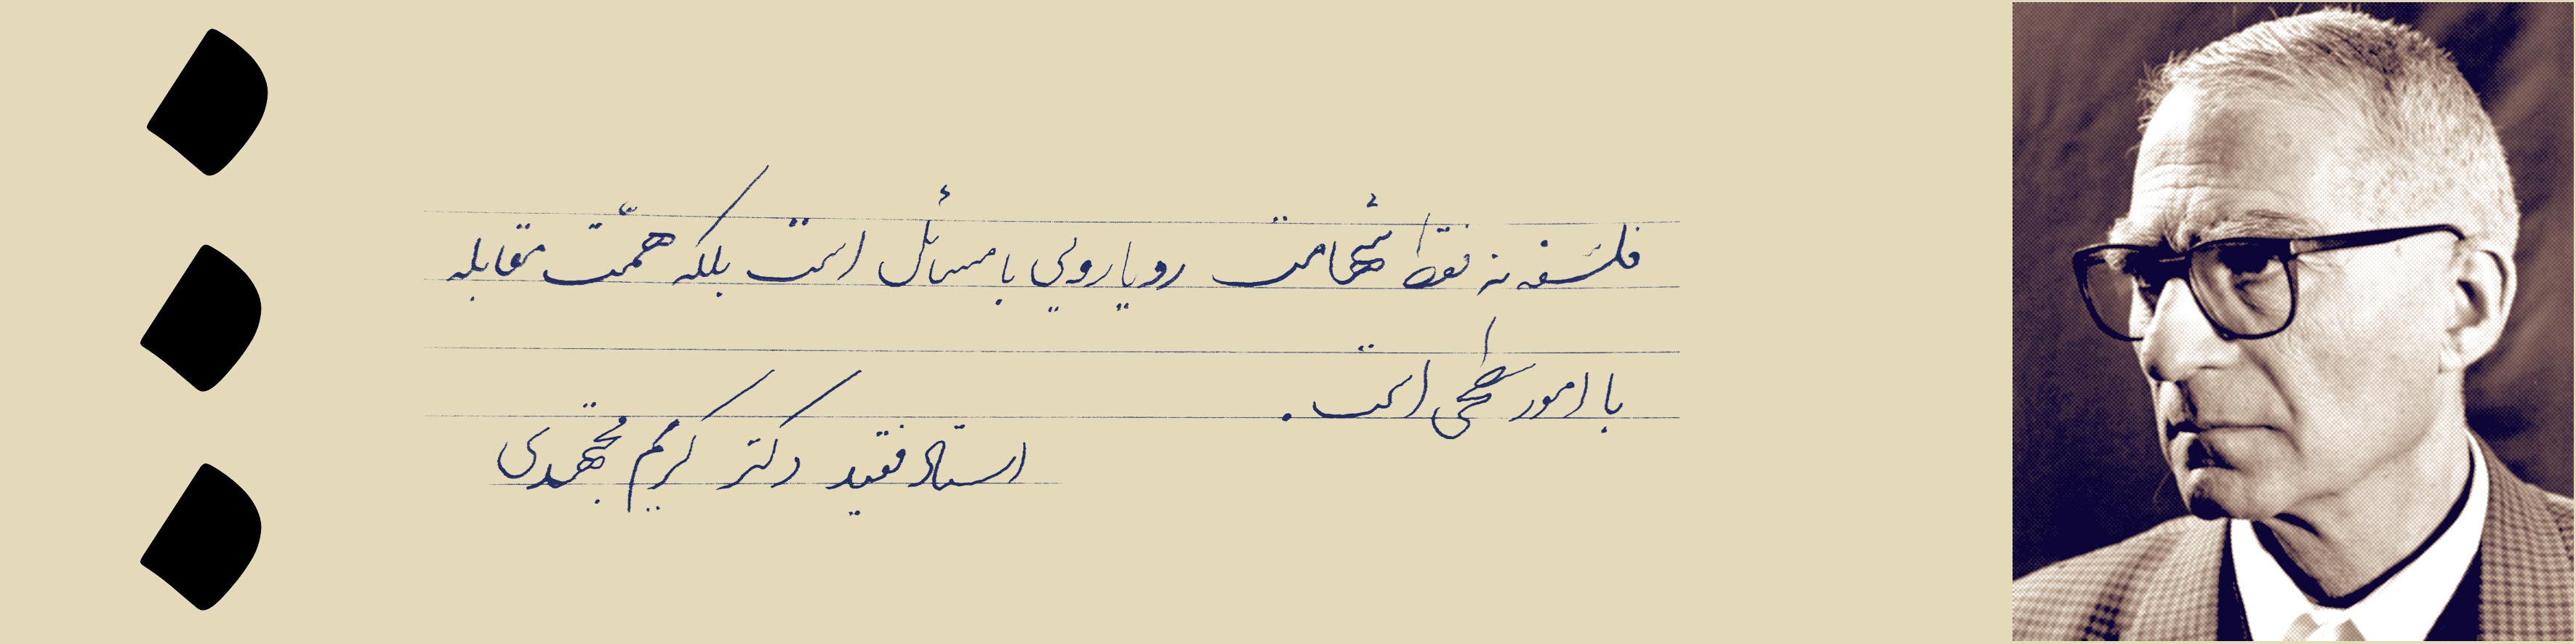 فلسفه نه فقط شهامت رویارویی با مسائل است بلکه همّت مقابله
با امور سطحی است.
استاد فقید دکتر کریم مجتهدی